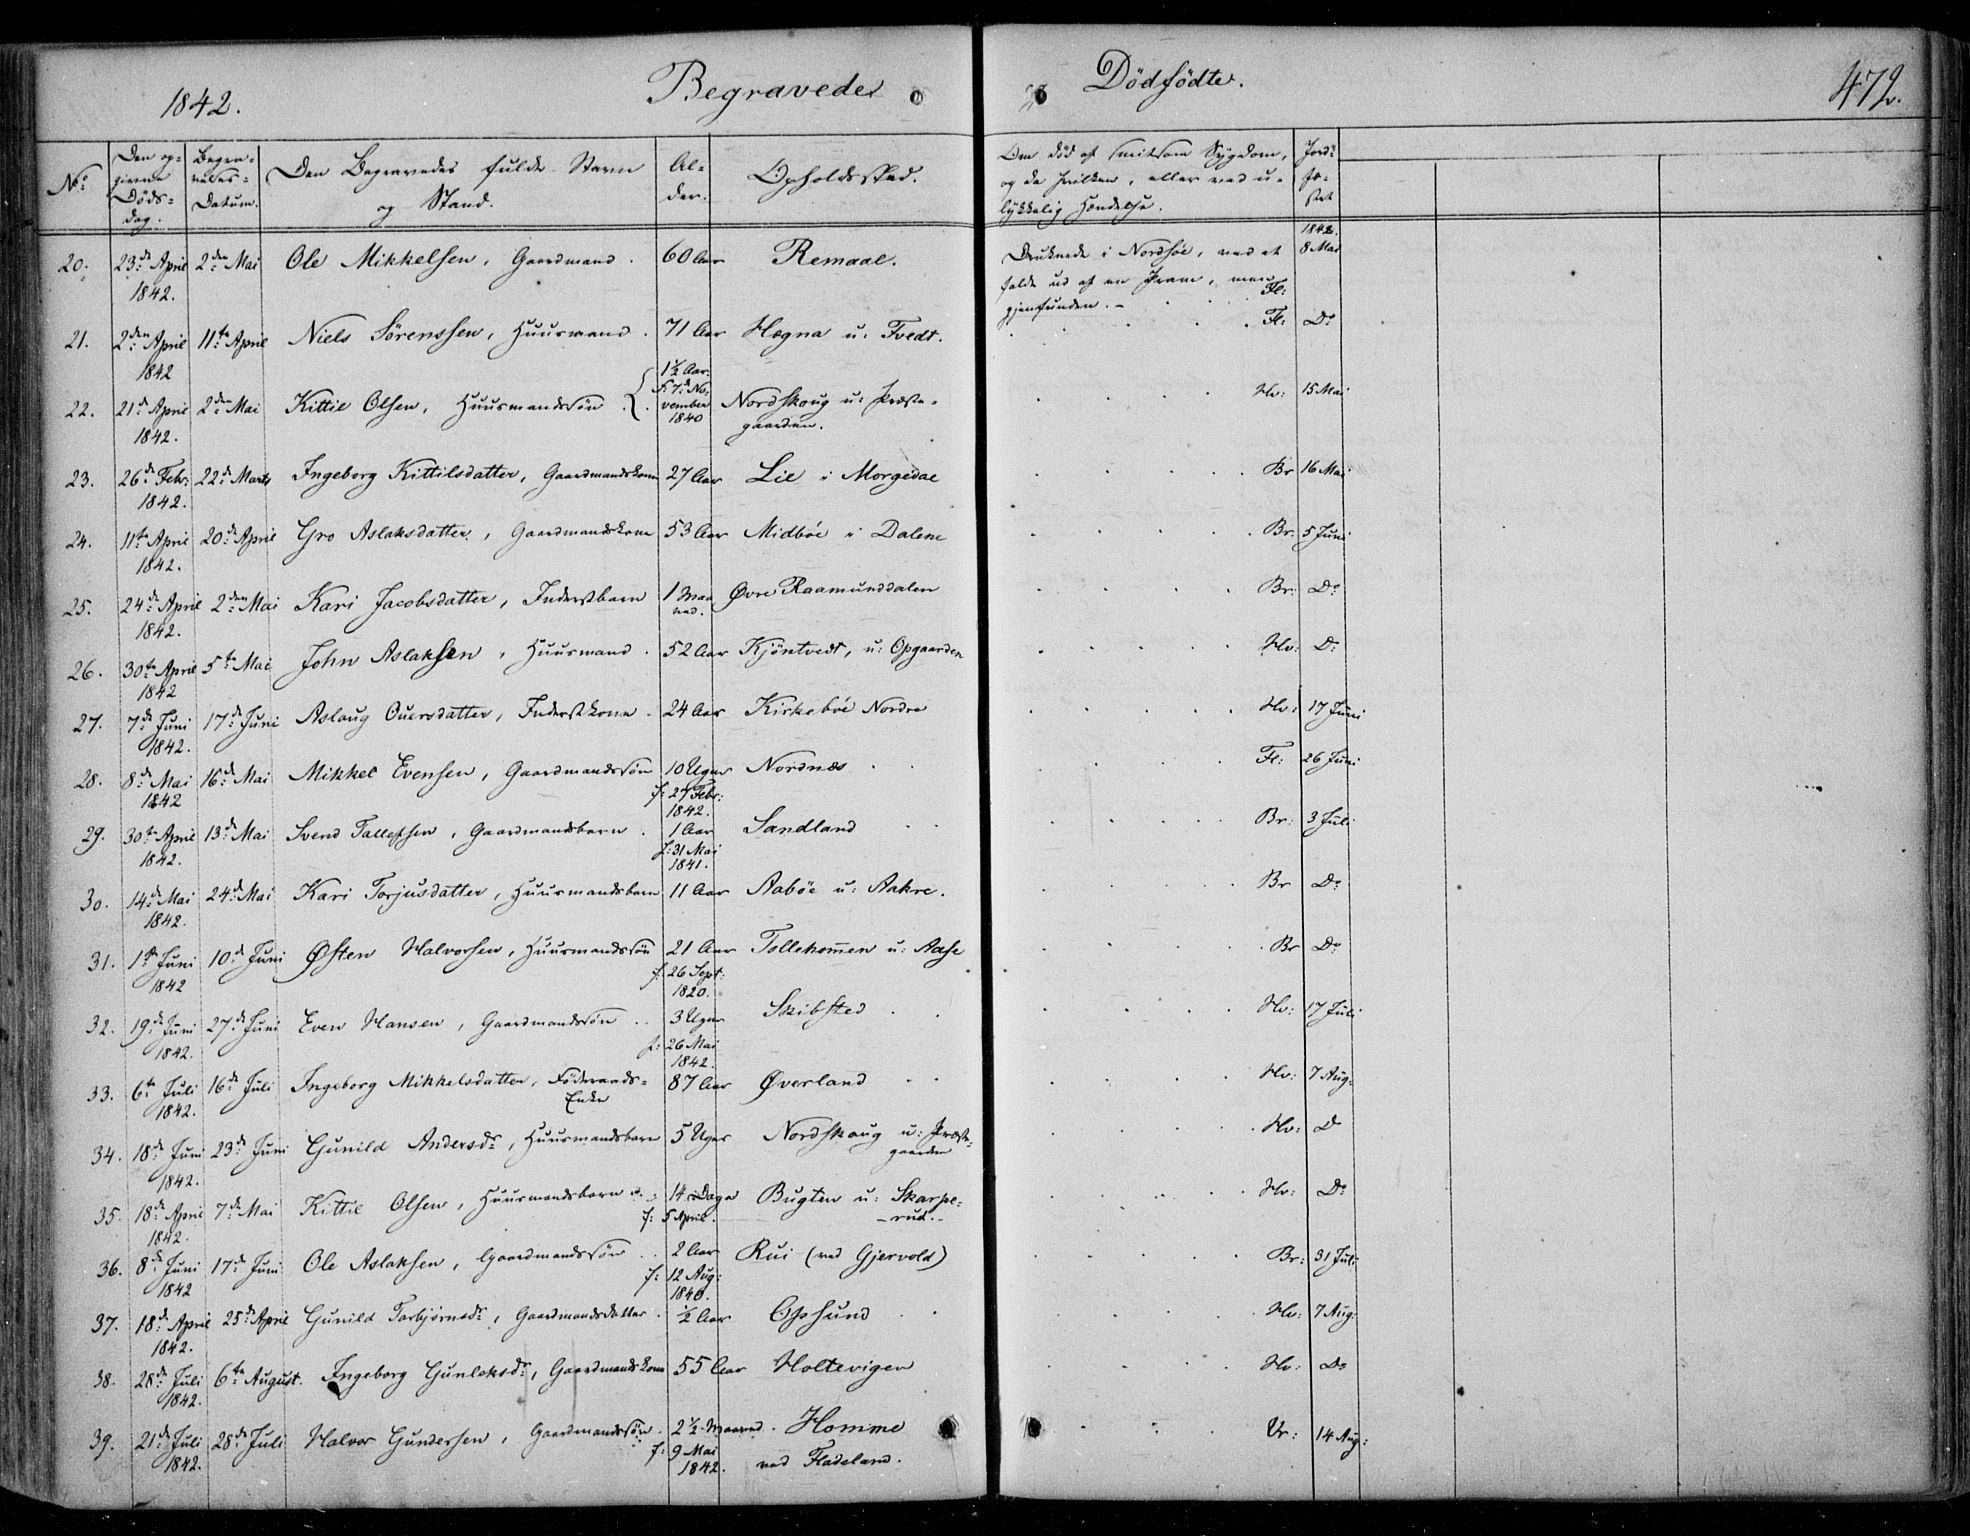 1842.
Begravede
Dödfödte.
472.
No
Den op-
givne
Döds-
dag.
Begra-
velses-
Datum.
Den Begravedes fulde Navn
og Stand.
Al-
der.
Opholdssted.
Om död af smitsom Sygdom,
og da hvilken, eller ved u-
lykkelig Hændelse.
Jord-
fæ-
stet
20. 23de April 2den Mai Ole Mikkelsen, Gaardmand. 60 Aar Remaae. Druknede i Nordsøe, ved at 1842. 8 Mai
1842. falde ud af en Pram, men Fl:
gjenfunden.
21. 2den April 11te April Niels Sörenssen, Huusmand. 71 Aar Hægna u: Tvedt. Fl: Do
1842
1½ Aar.
22. 21de April 2den Mai Kittil Olsen, Huusmandssön. f: 7de November 1840 Nordskoug u: Præste- Hv: 15 Mai
1842. gaarden.
23. 26de Febr. 22de Marts Ingeborg Kittilsdatter, Gaardmandskone 27 Aar Lie i Morgedal Br 16 Mai
1842.
24. 11te April 20de April Gro Aslaksdatter, Gaardmandskone 53 Aar Midböe i Dalene Br. 5 Juni
1842.
25. 24de April 2den Mai Kari Jacobsdatter, Inderstbarn 1 Maaned. Øvre Raamunddalen Br: Do
1842.
26. 30te April 5te Mai John Aslaksen, Huusmand. 52 Aar Kjöntvedt, u: Opgaarden Hv: Do
1842
27. 7de Juni 17de Juni Aslaug Ouersdatter, Inderstkone. 24 Aar Kirkeböe Nordre Hv: 17 Juni
1842.
28. 8de Mai 16de Mai Mikkel Evensen, Gaardmandssön 10 Uger Nordnæs Fl: 26 Juni
1842 f: 27 Febr: 1842.
29. 30te April 13de Mai Svend Tallefsen, Gaardmandsbarn. 1 Aar Sandland Br: 3 Juli
1842. f: 31 Mai 1841.
30. 14de Mai 24de Mai Kari Torjusdatter, Huusmandsbarn 11 Aar Aaböe u: Aakre. Br Do
1842.
31. 1ste Juni 10de Juni Østen Halvorsen, Huusmandssön 21 Aar Tollehommen u: Aase Br Do
1842 f: 26 Sept: 1820.
32. 19de Juni 27de Juni Even Hansen, Gaardmandssön 3 Uger Skibsted Hv: 17 Juli
1842. f: 26 Mai 1842.
33. 6te Juli 16de Juli Ingeborg Mikkelsdatter, Föderaads- 87 Aar Øverland Hv: 7 Aug:
1842. Enke
34. 18de Juni 23de Juni Gunild Andersdr, Huusmandsbarn 5 Uger Nordskoug u: Præste- Hv: D
1842. gaarden
35. 18de April 7de Mai Kittil Olsen, Huusmandsbarn 14 Dage Bugten u: Skarpe- Hv: Do
1842. f: 5 April. -rud.-
36. 8de Juni 17de Juni Ole Aslaksen, Gaardmandssön 2 Aar Rui (ved Gjervold) Br: 31 Juli
1842 f: 12 Aug: 1840.
37. 18de April 25de April Gunild Torbjörnsdr, Gaardmandsdatter. ½ Aar Opsund Hv: 7 Aug:
1842.
38. 28de Juli 6te August. Ingeborg Gunleksdr, Gaardmandskone 55 Aar Holtevigen Hv: Do
1842.
39. 21de Juli 28de Juli Halvor Gundersen, Gaardmandssön. 2½ Maaned. Homme Vr: 14 Aug:
1842. f: 9 Mai 1842. ved Fladeland.